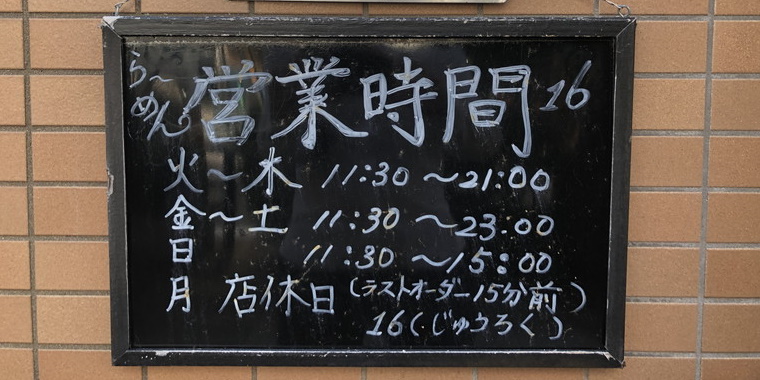 らーめん 営業時間 16
火〜木 11:30 〜21:00
金〜土 11:30 〜23:00
日 11:30 〜15:00
月 店休日 (ラストオーダー15分前)
16(じゅうろく)